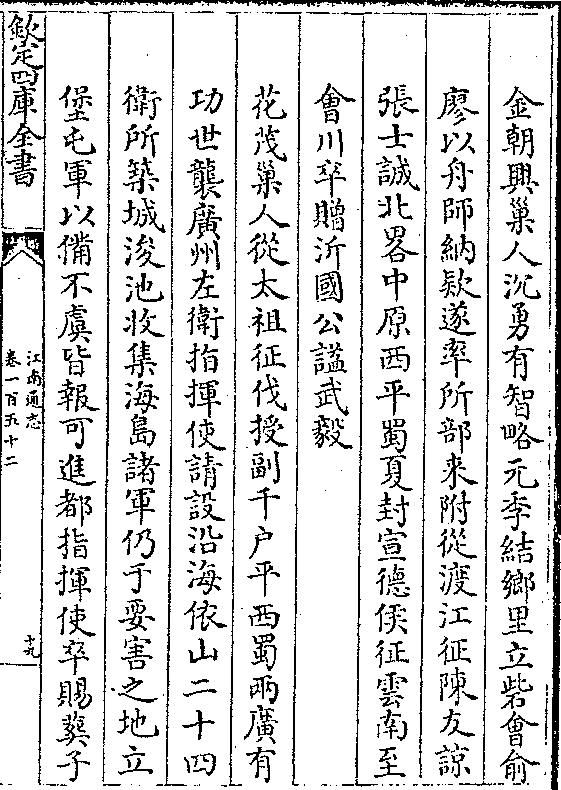 金朝興巢人沉勇有智略元季結鄉里立砦會俞
廖以舟師納欵遂率所部来附從渡江征陳友諒
張士誠北畧中原西平蜀夏封宣德侯征雲南至
會川卒贈沂國公諡武毅
花茂巢人從太祖征伐授副千户平西蜀兩廣有
功世襲廣州左衛指揮使請設沿海依山二十四
衛所築城浚池收集海島諸軍仍于要害之地立
堡屯軍以備不虞皆報可進都指揮使卒賜葬子
欽定四庫全書
江南通志
卷一百五十二
十九